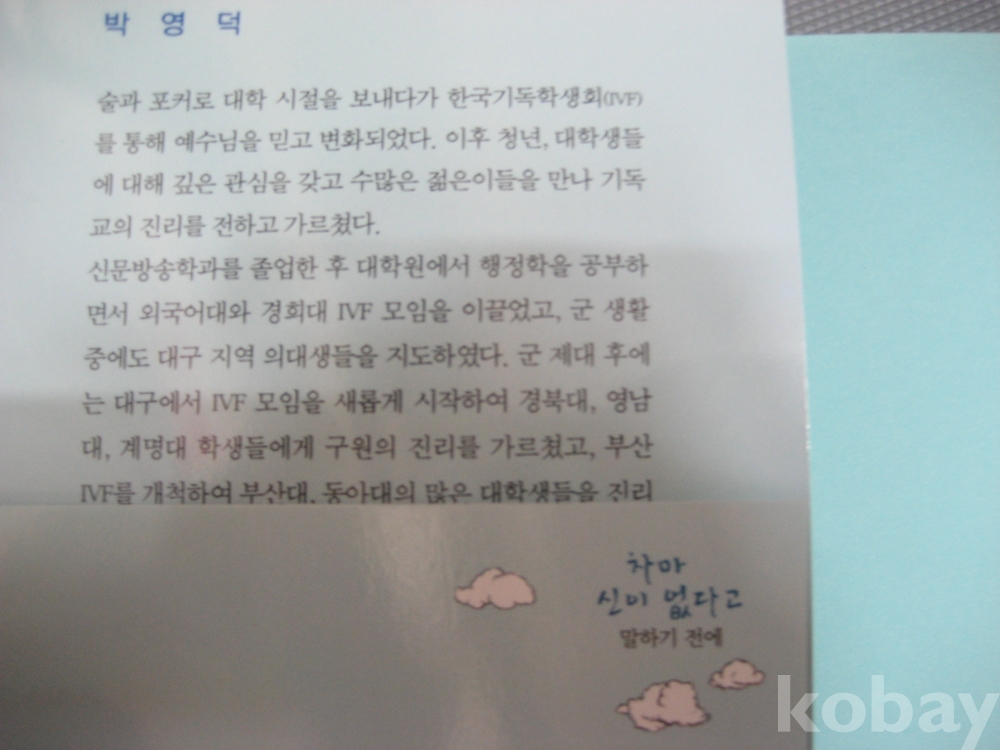 박 영 덕
술과 포커로 대학 시절을 보내다가 한국기독학생회(IVF)
를 통해 예수님을 믿고 변화되었다. 이후 청년, 대학생들
에 대해 깊은 관심을 갖고 수많은 젊은이들을 만나 기독
교의 진리를 전하고 가르쳤다.
신문방송학과를 졸업한 후 대학원에서 행정학을 공부하
면서 외국어대와 경희대 IVF 모임을 이끌었고, 군 생활
중에도 대구 지역 의대생들을 지도하였다. 군 제대 후에
는 대구에서 IVF 모임을 새롭게 시작하여 경북대, 영남
대, 계명대 학생들에게 구원의 진리를 가르쳤고, 부산
IVF를 개척하여 부산대, 동아대의 많은 대학생들을 진리
차마
신이 없다고
말하기 전에
kobay